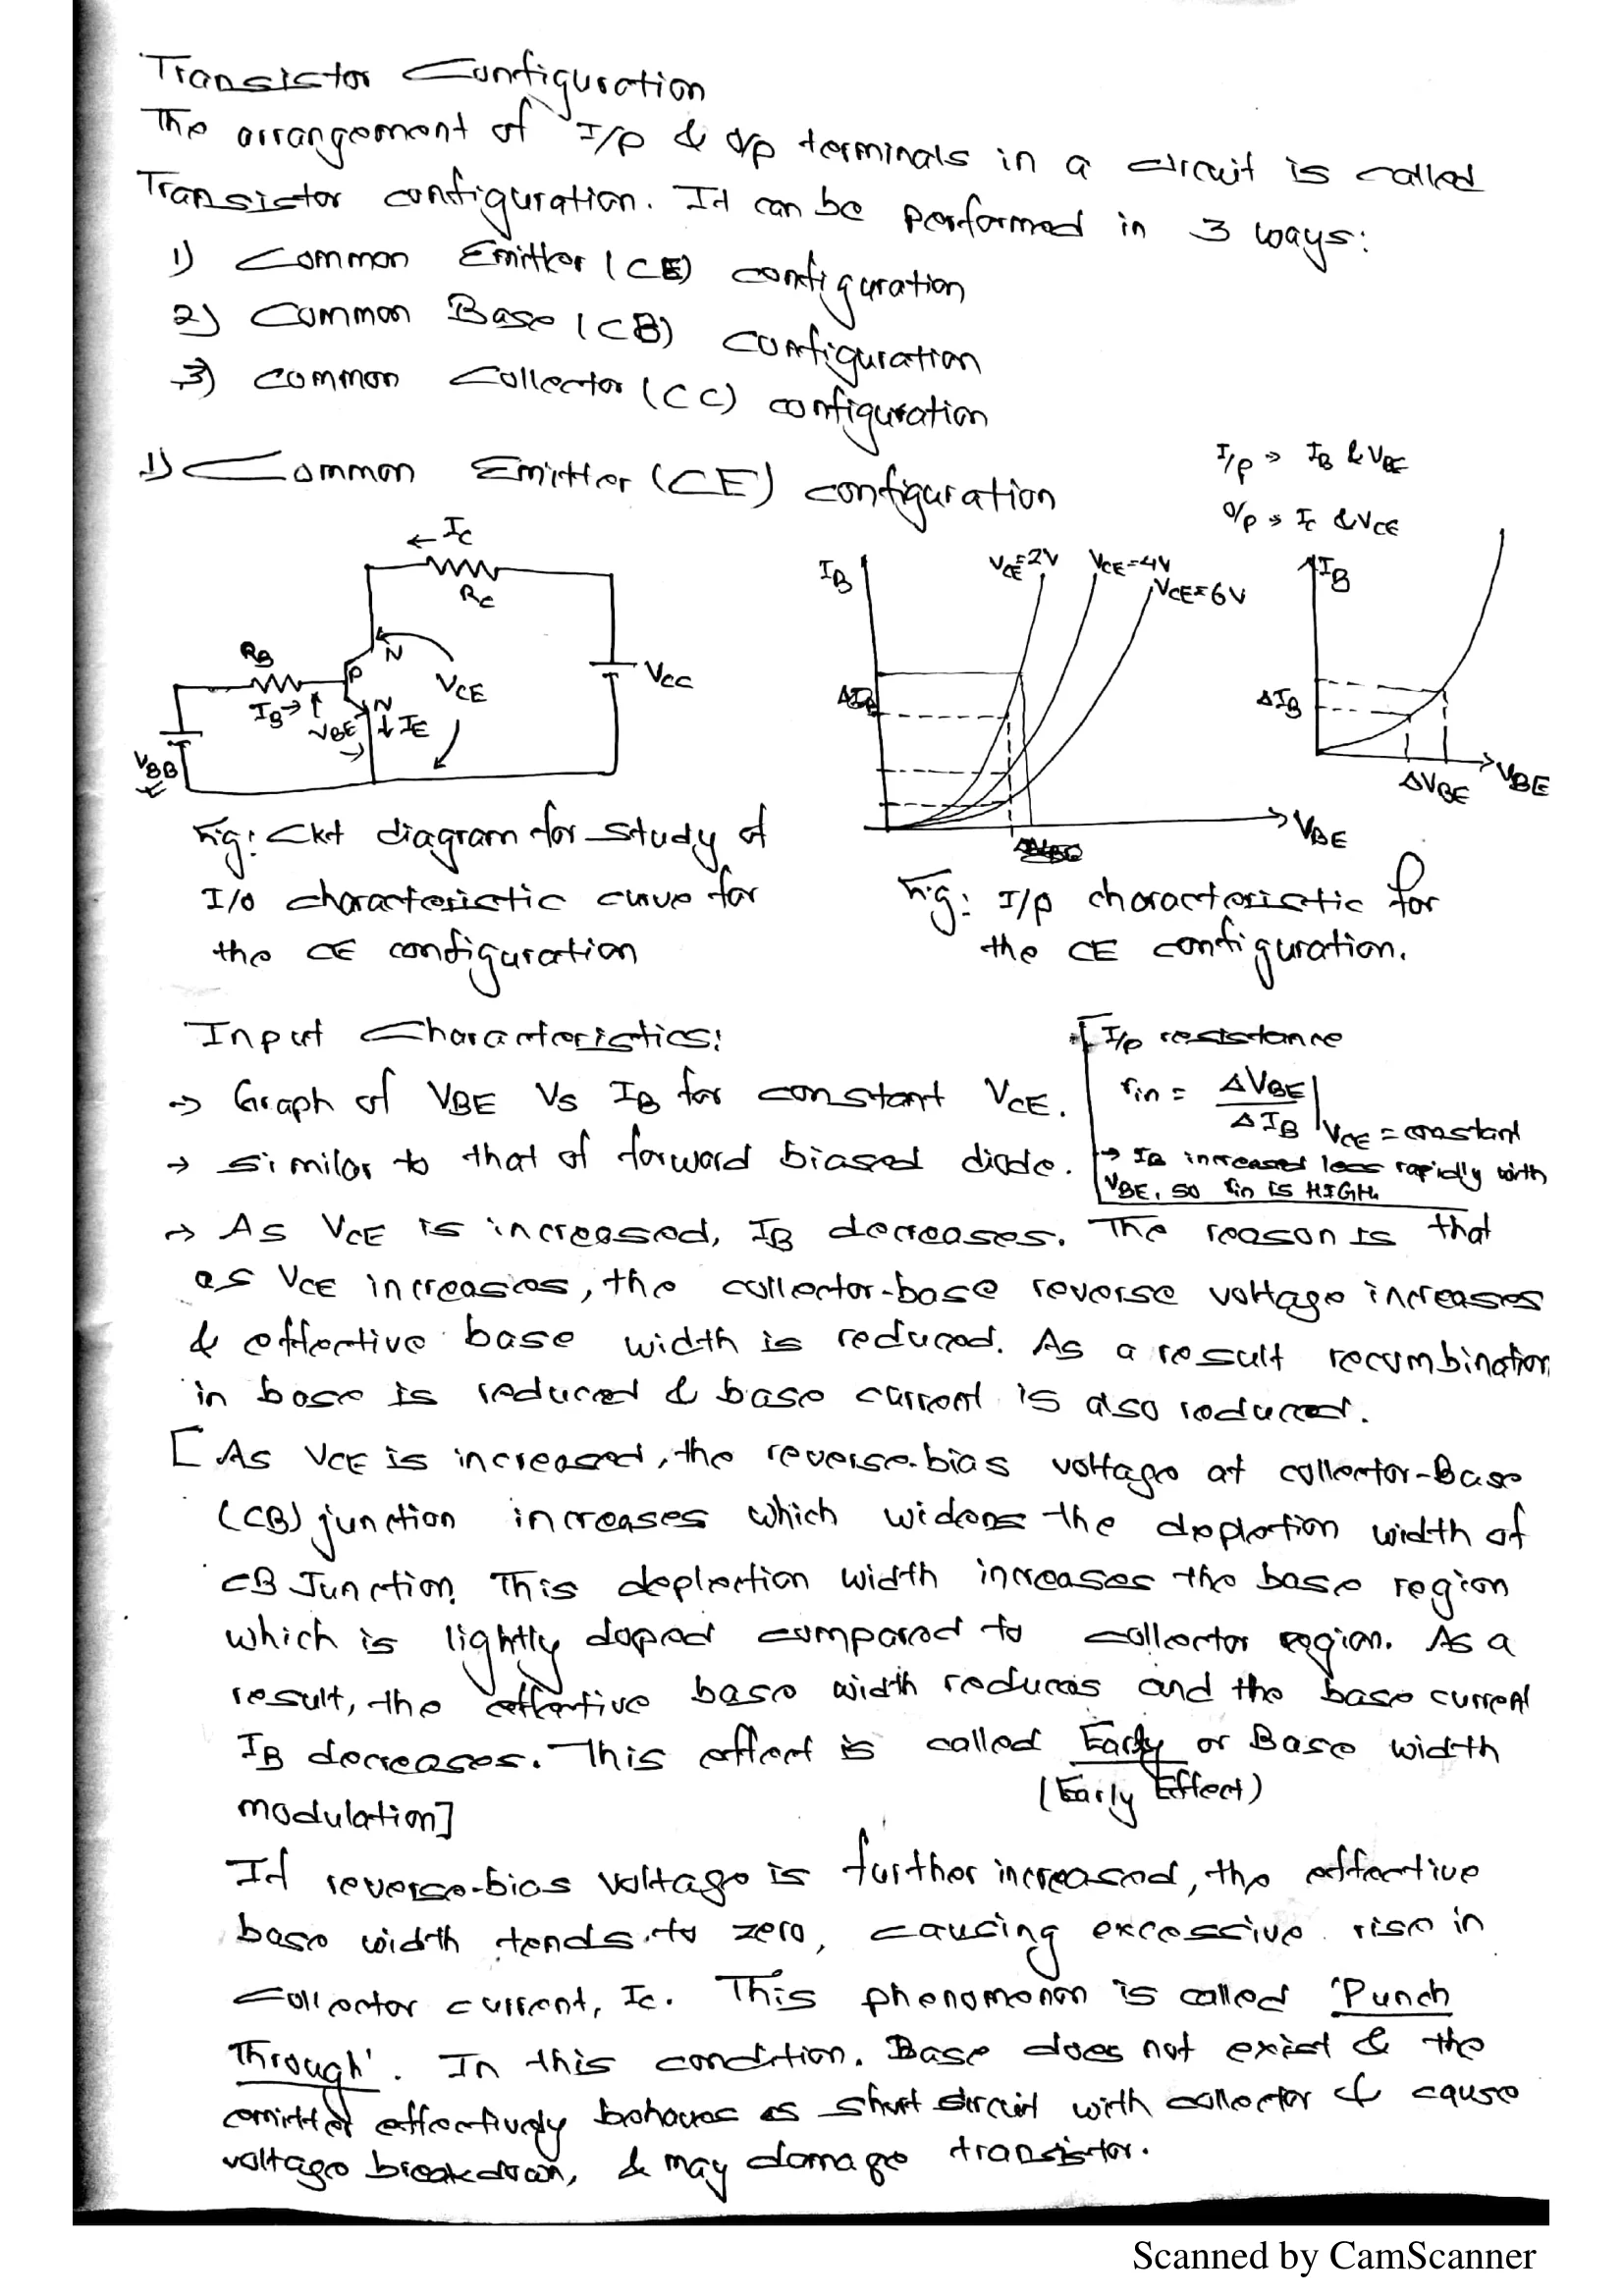 Transistor Configuration
The arrangement of I/p & o/p terminals in a circuit is called
Transistor configuration. It can be performed in 3 ways:
1) Common Emitter (CE) configuration
2) Common Base (CB) configuration
3) Common Collector (CC) configuration
1) Common Emitter (CE) configuration
I/p → IB & VBE
O/p → IC & VCE
← IC
RC
RB
N
P
N
VCE
VCC
IB →
VBE
↓ IE
VBB
IB
VCE=2V
VCE=4V
VCE=6V
VBE
IB
ΔIB
ΔVBE
VBE
Fig: Ckt diagram for study of
I/O characteristic curve for
the CE configuration
Fig: I/p characteristic for
the CE configuration.
Input Characteristics:
→ Graph of VBE Vs IB for constant VCE.
→ similar to that of forward biased diode.
I/p resistance
rin = ΔVBE / ΔIB | VCE = constant
→ IB increased less rapidly with
VBE, so rin is HIGH.
→ As VCE is increased, IB decreases. The reason is that
as VCE increases, the collector-base reverse voltage increases
& effective base width is reduced. As a result recombination
in base is reduced & base current is also reduced.
[As VCE is increased, the reverse-bias voltage at collector-Base
(CB) junction increases which widens the depletion width of
CB Junction. This deplection width increases the base region
which is lightly doped compared to collector region. As a
result, the effective base width reduces and the base current
IB decreases. This effect is called Early or Base width
(Early Effect)
modulation]
If reverse-bias voltage is further increased, the effective
base width tends to zero, causing excessive rise in
collector current, IC. This phenomenon is called 'Punch
Through'. In this condition. Base does not exist & the
emitter effectively behaves as short circuit with collector & cause
voltage breakdown, & may damage transistor.
Scanned by CamScanner